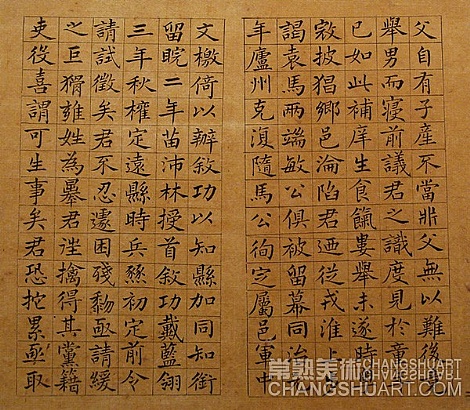 父自有子產不當非父無以難後
舉男而寢前議君之識度見於童
已如此補庠生食餼婁舉未遂時
寇披猖鄉邑淪陷君迺從戎淮上
謁袁馬兩端敏公俱被留幕同治
年廬州克復隨馬公徇定屬邑軍中
文檄倚以辦敘功以知縣加同知銜
留皖二年苗沛林授首敘功戴藍翎
三年秋榷定遠縣時兵燹初定前令
請試徵矣君不忍遽困殘黎亟請緩
之巨猾雍姓為暴君擒得其黨籍
吏役喜謂可生事矣君恐拕累亟取
常熟美術 CHANGSHUART
CHANGSHUART.COM